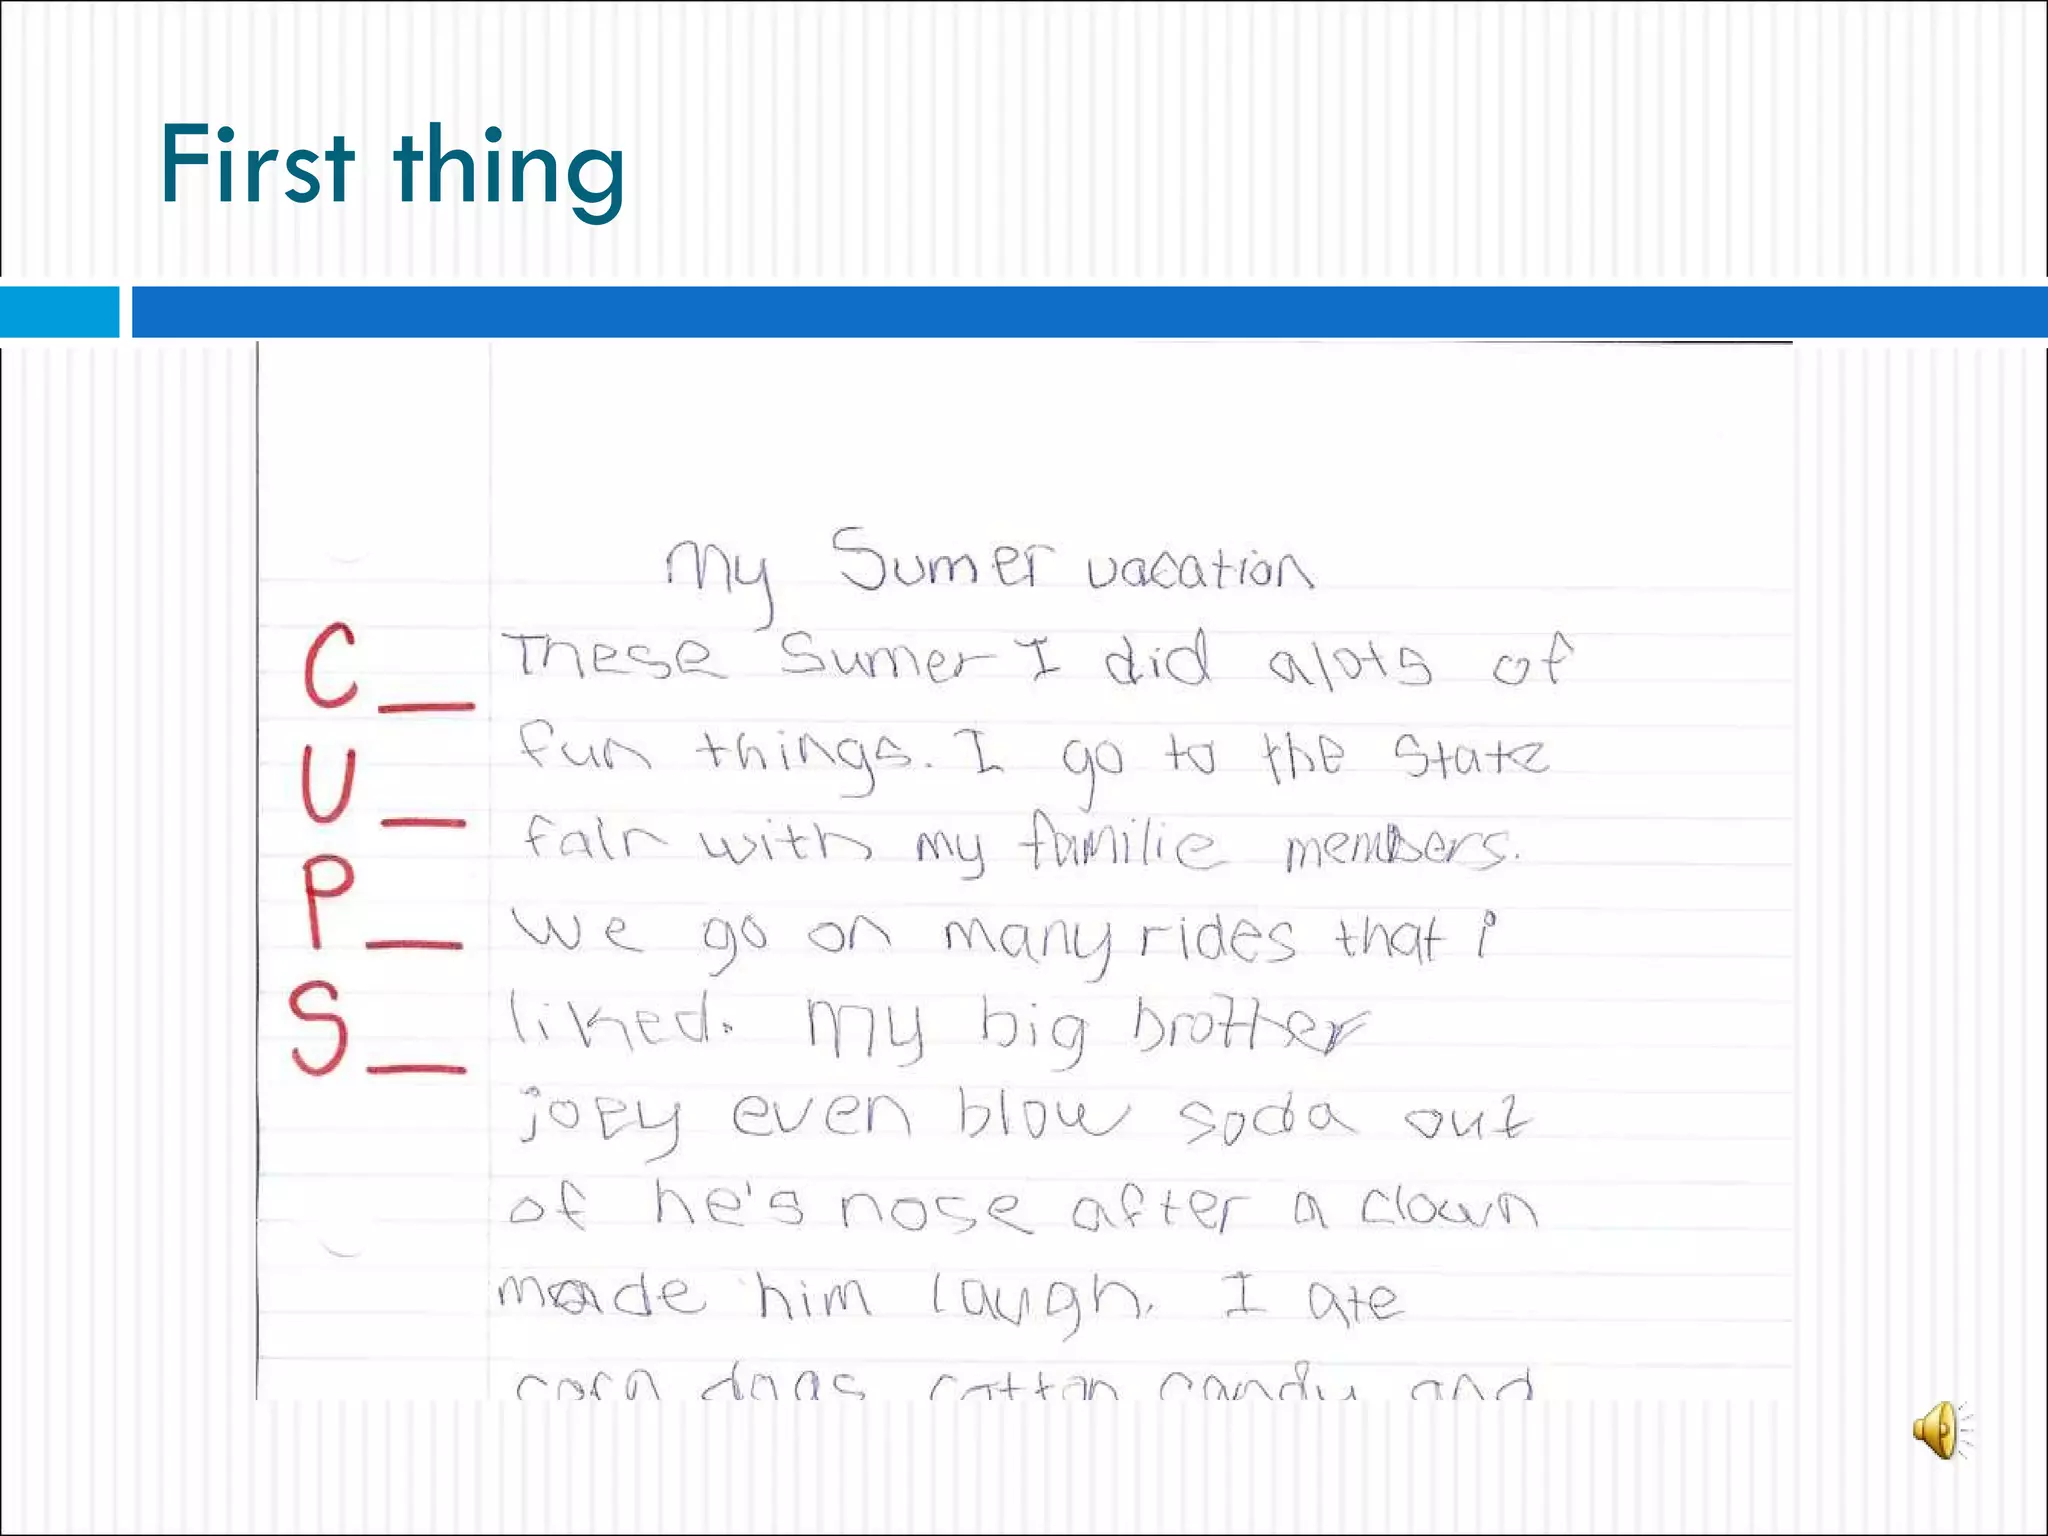 First thing
My Sumer vacation
C_ These Sumer I did alots of
U_ fun things. I go to the State
fair with my familie members.
P_ we go on many rides that i
S_ liked. My big brother
joey even blow soda out
of he's nose after a clown
made him laugh. I ate
corn dogs cotton candy and